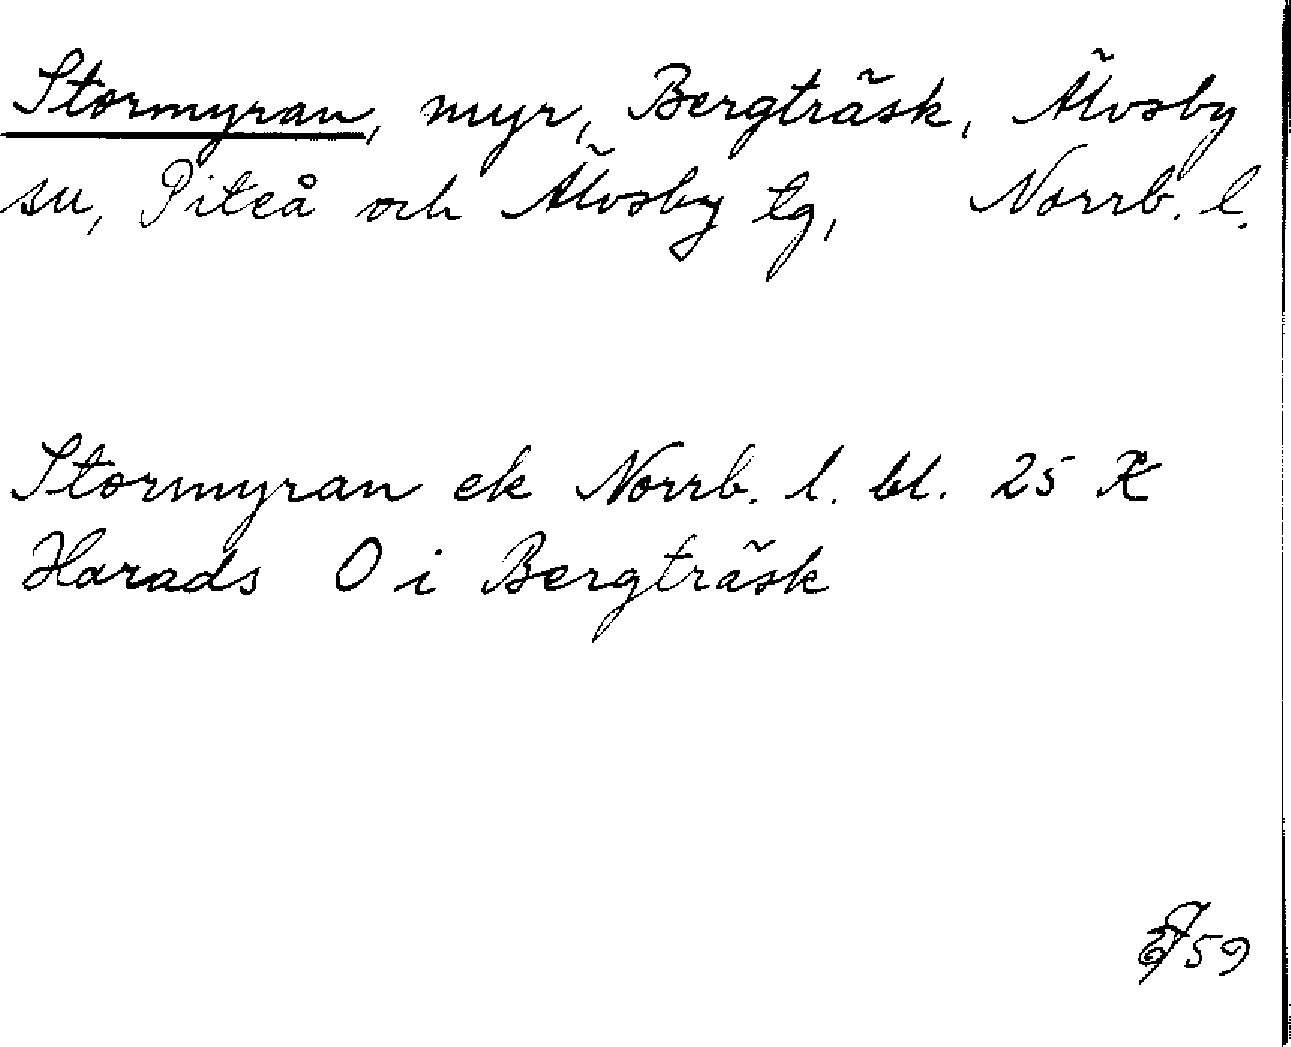 Stormyran, myr, Bergträsk, Älvsby
su, Piteå och Älvsby tg, Norrb. l.
Stormyran ek Norrb. l. bl. 25
Harads O i Bergträsk
59